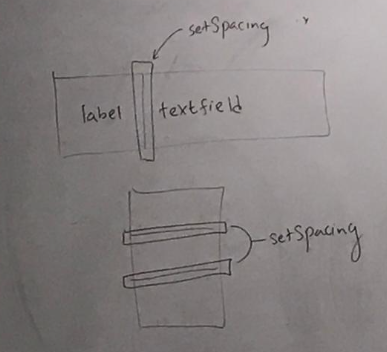 setSpacing
label textfield
setSpacing